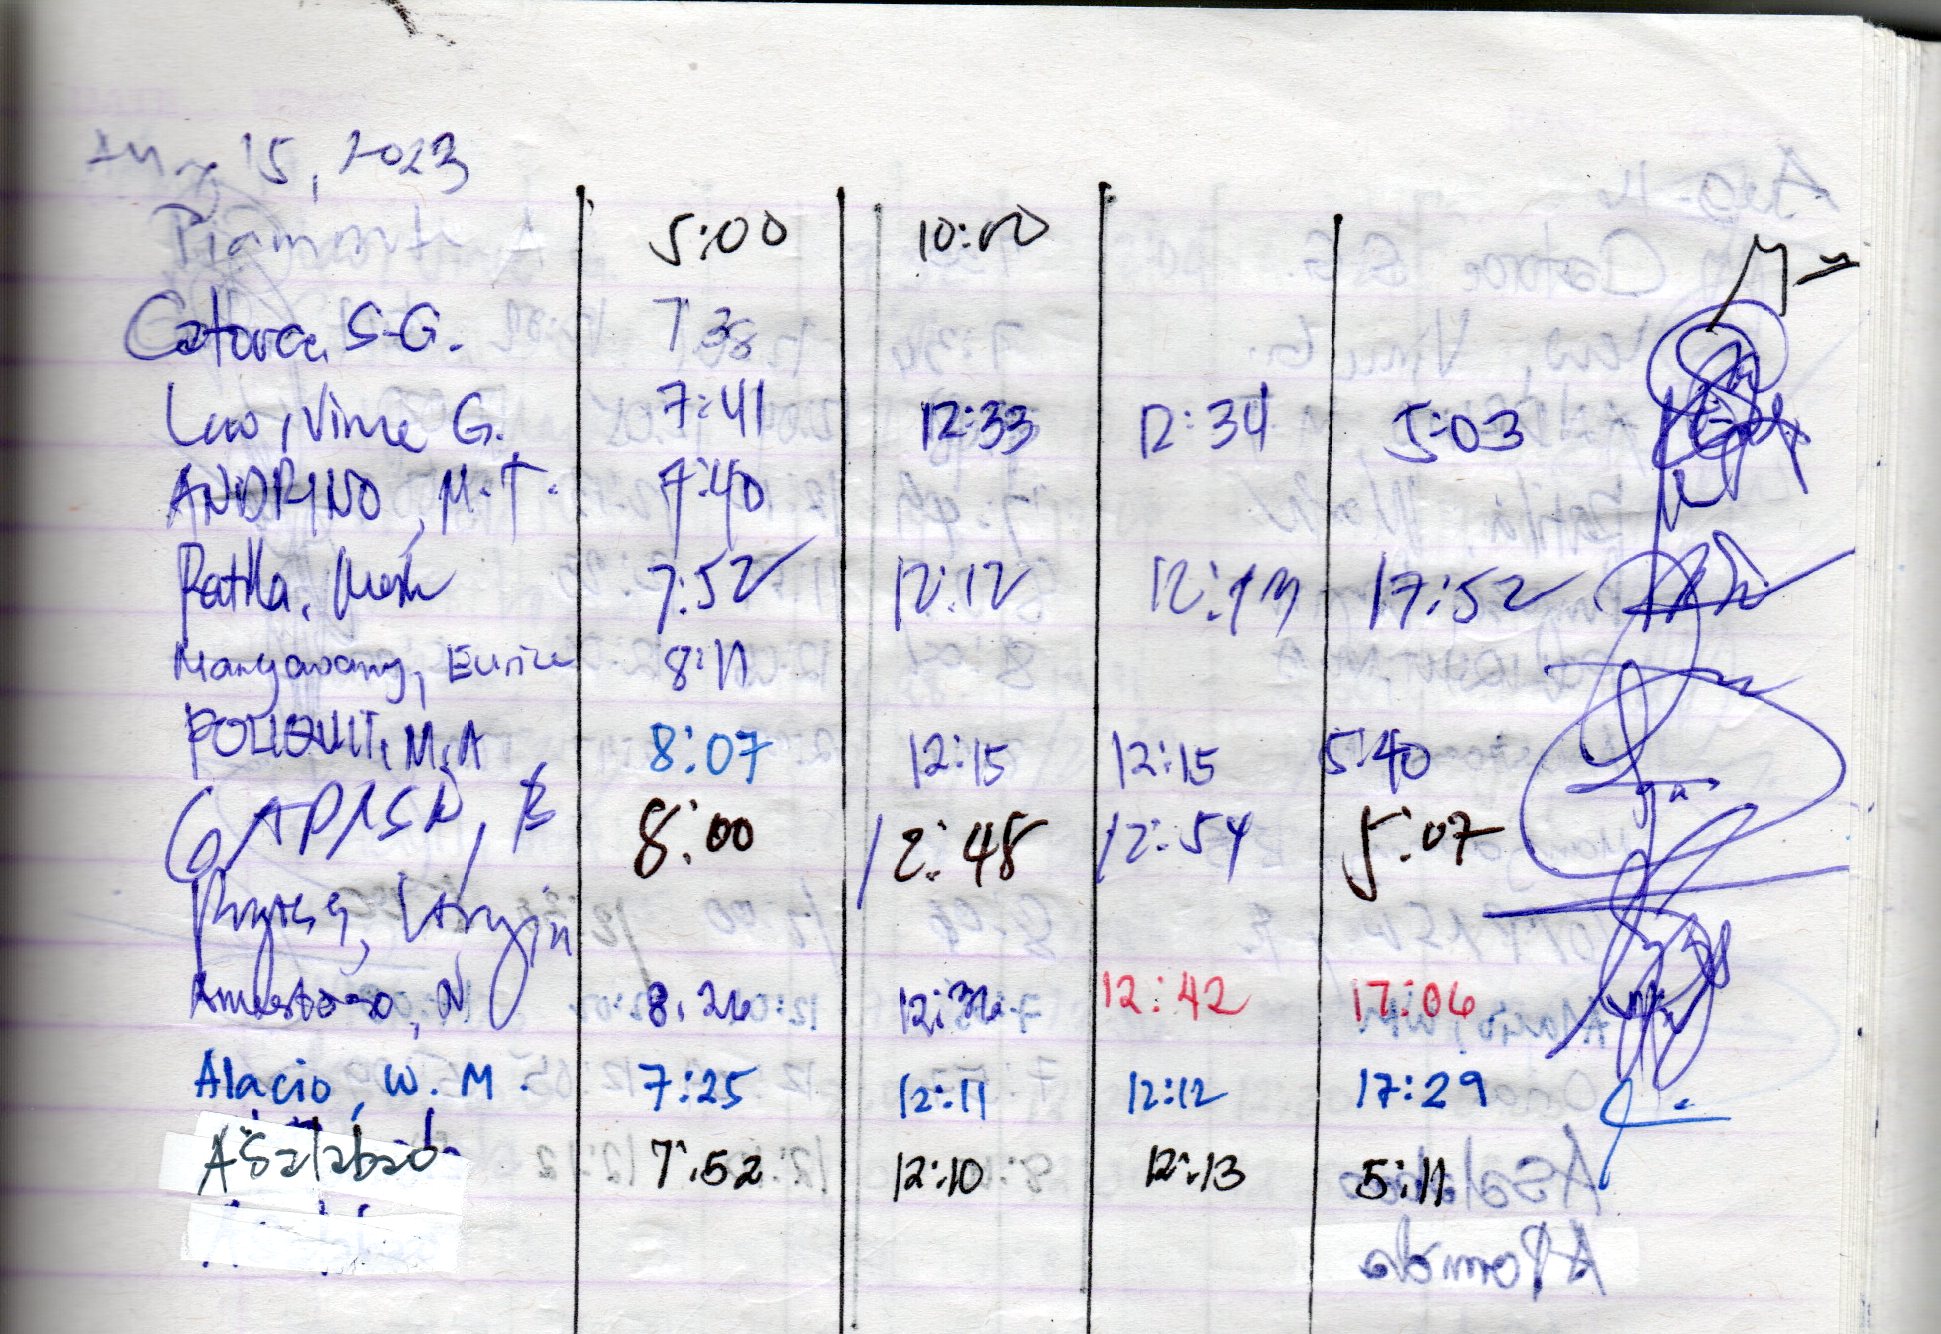 Aug 15, 2023
Piamonte A 5:00 10:00
Catorce S.G. 7 38
Luo, Vince G. 7:41 12:33 12:34 5:03
ANDRINO, M.T. 7:40
Patilla, Mark 7:52 12:12 12:13 17:52
Mangawang, Eunice 8:11
POLIQUIT, M.A 8:07 12:15 12:15 5:40
GAPASIN, B 8:00 12:48 12:54 5:07
Amestoso, N 8:26 12:36 12:42 17:06
Alacio, W.M. 7:25 12:11 12:12 17:29
ASalabao 7:52 12:10 12:13 5:11